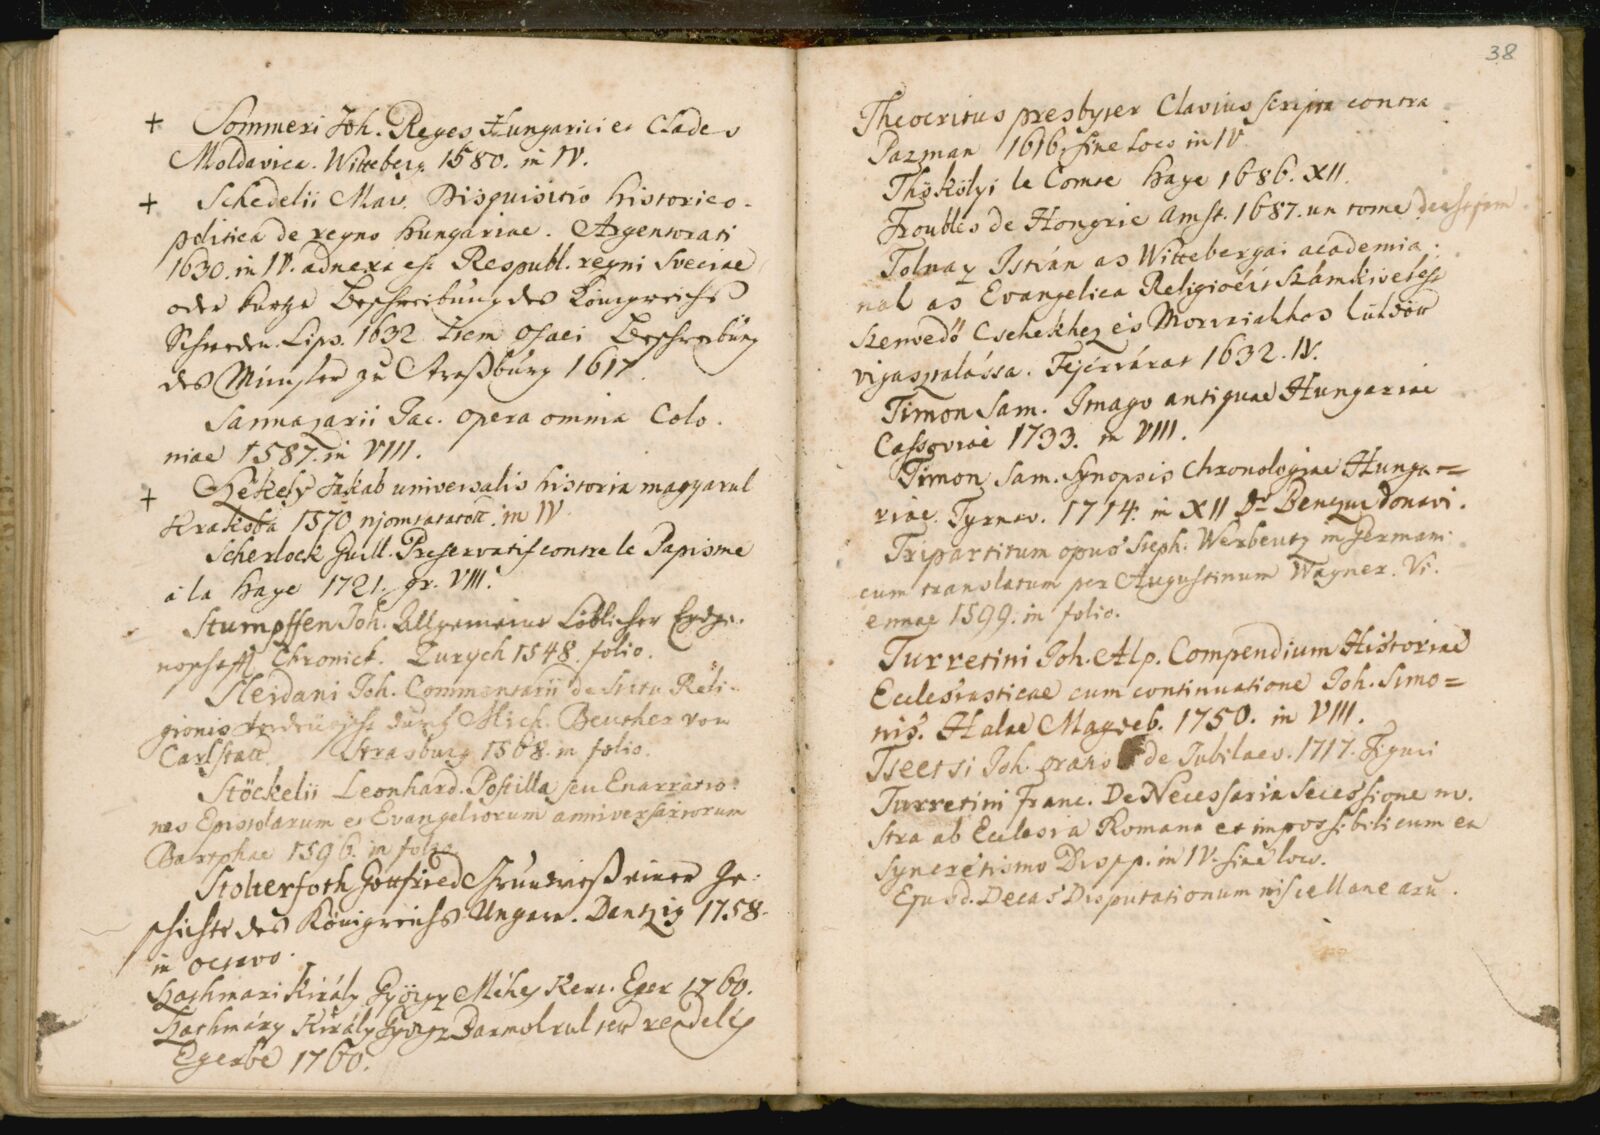 + Sommeri Joh. Reges Hungarici et Clades
Moldavica. Witteberg. 1580. in IV.
+ Schedelii Mav. Disquisitio historico-
politica de regno hungariae. Argentorati
1630. in IV. adnexa est Respubl. regni Sveciae
oder kurtze Beschreibung des Königreichs
Schweden. Lips. 1632 Item Osaei Beschreibung
des Münster zu Straßburg 1617.
Sannazarii Jac. opera omnia Colo.
niae 1587. in VIII.
+ Székely Jakab universalis historia magyarul
Krakoba 1570 njomtatatott. in IV
Scherlock Guill. Preservatif contre le Papisme
a la haye 1721. gr. VIII.
Stumpffen Joh. Allgemeine Löblicher Eydge.
noschafft Chronick. Zurych 1548. folio.
Sleidani Joh. Commentarii de Statu Reli-
gionis durch Mich. Beuther von
Carlstatt. Strasburg 1568. in folio.
Stöckelii Leonhard. Postilla seu Enarratio:
nes Epistolarum et Evangeliorum anniversariorum
Bartphae 1596. in folio
Stolterfoth Gottfried Grundriß einer Ge:
schichte des Königreichs Ungarn. Dantzig 1758.
in octavo.
Szathmari Király György Méhej Kert. Eger 1760.
Szathmáry Király György Darmolrul
Egerbe 1760.
38
Theocritus presbyter Clavius scripta contra
Pazman 1616. sine loco in IV
Thököly i le Comte haye 1686. XII.
Troubles de Hongrie Amst. 1687. un tome
Tolnay István as Wittebergai academia:
nal as Evangelica Religioért Számkivetést
szenvedő Csehekhez és Morvaiakhos küldött
vigasztalássa. Fejérvárat 1632. IV.
Timon Sam. Imago antiquae Hungariae
Cassoviae 1733. in VIII.
Timon Sam. Synopsis Chronologiae Hunga=
riae. Tyrnav. 1714. in XII Dr Benczur donavi.
Tripartitum opus Steph. Werbeutz in Germani
cum translatum per Augustinum Wagner. Vi.
ennae 1599. in folio.
Turretini Joh. Alp. Compendium Historiae
Ecclesiasticae cum continuatione Joh. Simo=
nis. Halae Magdeb. 1750. in VIII.
Tseetsi Joh. oratio de Jubilaeo. 1717. Figuri
Turretini Franc. De Necessaria Secessione no.
stra ab Ecclesia Romana et impossibili cum ea
Syncretismo Dispp. in IV. sine loco.
Ejusd. Decas Disputationum miscellanearū.